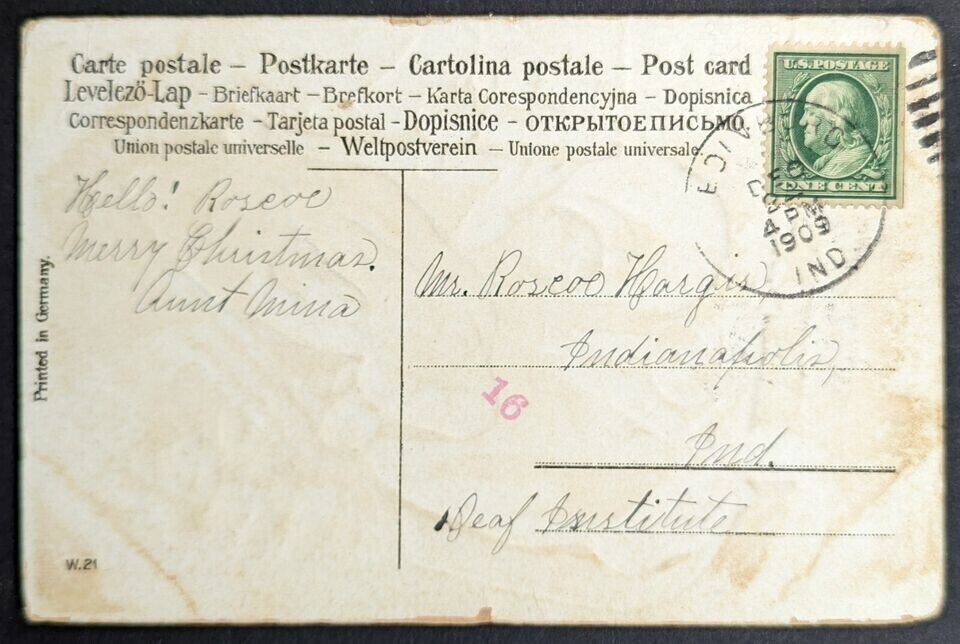 Carte postale – Postkarte – Cartolina postale – Post card
Levelező-Lap – Briefkaart – Brefkort – Karta Corespondencyjna – Dopisnica
Correspondenzkarte – Tarjeta postal – Dopisnice – ОТКРЫТОЕПИСЬМО
Union postale universelle – Weltpostverein – Untone postale universale
U.S. POSTAGE
ONE CENT
4 PM
1909
IND
Hello! Roscoe
Merry Christmas.
Aunt Mina
Printed in Germany.
Mr. Roscoe Hargis,
Indianapolis,
16
Ind.
Deaf Institute
W. 21